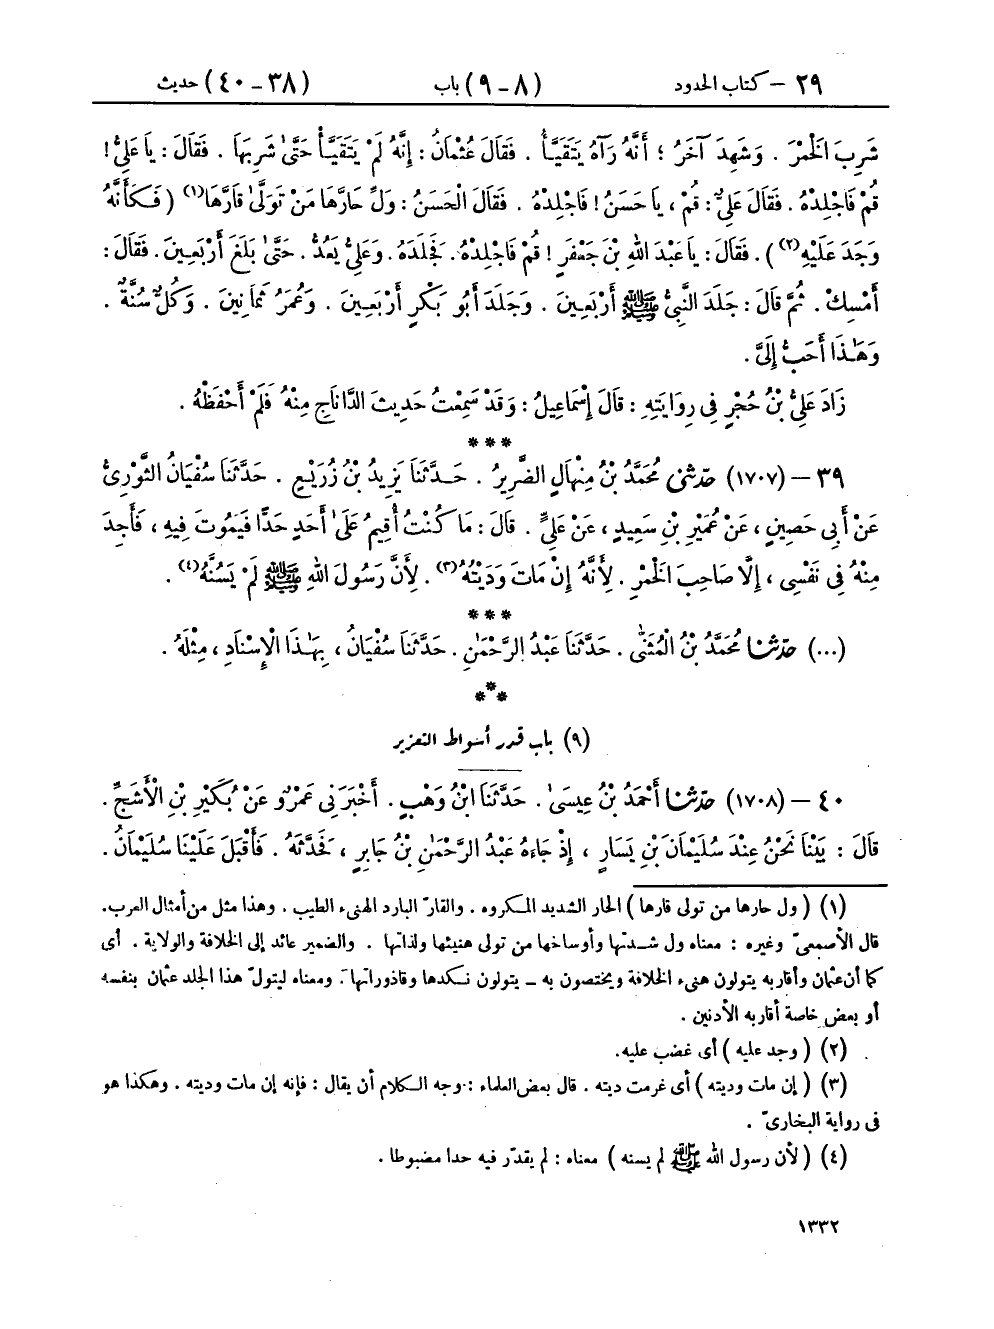 ٢٩ – كتاب الحدود (٨ - ٩) باب (٣٨ - ٤٠) حديث
شَرِبَ الْخَمْرَ . وَشَهِدَ آخَرُ ؛ أَنَّهُ رَآهُ يَتَقَيَّأُ . فَقَالَ عُثْمَانُ : إِنَّهُ لَمْ يَتَقَيَّأْ حَتَّىٰ شَرِبَهَا . فَقَالَ : يَا عَلِيُّ !
قُمْ فَاجْلِدْهُ . فَقَالَ عَلِيٌّ : قُمْ ، يَا حَسَنُ ! فَاجْلِدْهُ . فَقَالَ الْحَسَنُ : وَلِّ حَارَّهَا مَنْ تَوَلَّىٰ قَارَّهَا(١) ( فَكَأَنَّهُ
وَجَدَ عَلَيْهِ(٢) ) . فَقَالَ : يَا عَبْدَ اللهِ بْنَ جَعْفَرٍ ! قُمْ فَاجْلِدْهُ . فَجَلَدَهُ . وَعَلِيٌّ يَعُدُّ . حَتَّىٰ بَلَغَ أَرْبَعِينَ . فَقَالَ :
أَمْسِكْ . ثُمَّ قَالَ : جَلَدَ النَّبِيُّ ﷺ أَرْبَعِينَ . وَجَلَدَ أَبُو بَكْرٍ أَرْبَعِينَ . وَعُمَرُ ثَمَانِينَ . وَكُلٌّ سُنَّةٌ .
وَهَٰذَا أَحَبُّ إِلَىَّ .
زَادَ عَلِيُّ بْنُ حُجْرٍ فِى رِوَايَتِهِ : قَالَ إِسْمَاعِيلُ : وَقَدْ سَمِعْتُ حَدِيثَ الدَّانَاجِ مِنْهُ فَلَمْ أَحْفَظْهُ .
***
٣٩ – (١٧٠٧) حدّثنى مُحَمَّدُ بْنُ مِنْهَالٍ الضَّرِيرُ . حَدَّثَنَا يَزِيدُ بْنُ زُرَيْعٍ . حَدَّثَنَا سُفْيَانُ الثَّوْرِىُّ
عَنْ أَبِي حَصِينٍ ، عَنْ عُمَيْرِ بْنِ سَعِيدٍ ، عَنْ عَلِيٍّ . قَالَ : مَا كُنْتُ أُقِيمُ عَلَىٰ أَحَدٍ حَدًّا فَيَمُوتَ فِيهِ ، فَأَجِدَ
مِنْهُ فِى نَفْسِى ، إِلَّا صَاحِبَ الْخَمْرِ . لِأَنَّهُ إِنْ مَاتَ وَدَيْتُهُ(٣) . لِأَنَّ رَسُولَ اللهِ ﷺ لَمْ يَسُنَّهُ(٤) .
***
(...) حدّثنا مُحَمَّدُ بْنُ الْمُثَنَّىٰ . حَدَّثَنَا عَبْدُ الرَّحْمَٰنِ . حَدَّثَنَا سُفْيَانُ ، بِهَٰذَا الْإِسْنَادِ ، مِثْلَهُ .
***
(٩) باب قدر أسواط التعزير
٤٠ – (١٧٠٨) حدّثنا أَحْمَدُ بْنُ عِيسَىٰ . حَدَّثَنَا ابْنُ وَهْبٍ . أَخْبَرَنِى عَمْرٌو عَنْ بُكَيْرِ بْنِ الْأَشَجِّ .
قَالَ : بَيْنَا نَحْنُ عِنْدَ سُلَيْمَانَ بْنِ يَسَارٍ ، إِذْ جَاءَهُ عَبْدُ الرَّحْمَٰنِ بْنُ جَابِرٍ ، فَحَدَّثَهُ . فَأَقْبَلَ عَلَيْنَا سُلَيْمَانُ .
(١) ( ول حارها من تولى قارها ) الحار الشديد المكروه . والقارّ البارد الهنىء الطيب . وهذا مثل من أمثال العرب .
قال الأصمعىّ وغيره : معناه ول شدتها وأوساخها من تولى هنيئها ولذاتها . والضمير عائد إلى الخلافة والولاية . أى
كما أن عثمان وأقاربه يتولون هنىء الخلافة ويختصون به – يتولون نكدها وقاذوراتها . ومعناه ليتولّ هذا الجلد عثمان بنفسه
أو بعض خاصة أقاربه الأدنين .
(٢) ( وجد عليه ) أى غضب عليه .
(٣) ( إن مات وديته ) أى غرمت ديته . قال بعض العلماء : وجه الكلام أن يقال : فإنه إن مات وديته . وهكذا هو
فى رواية البخارىّ .
(٤) ( لأن رسول الله ﷺ لم يسنه ) معناه : لم يقدّر فيه حدا مضبوطا .
١٣٣٢